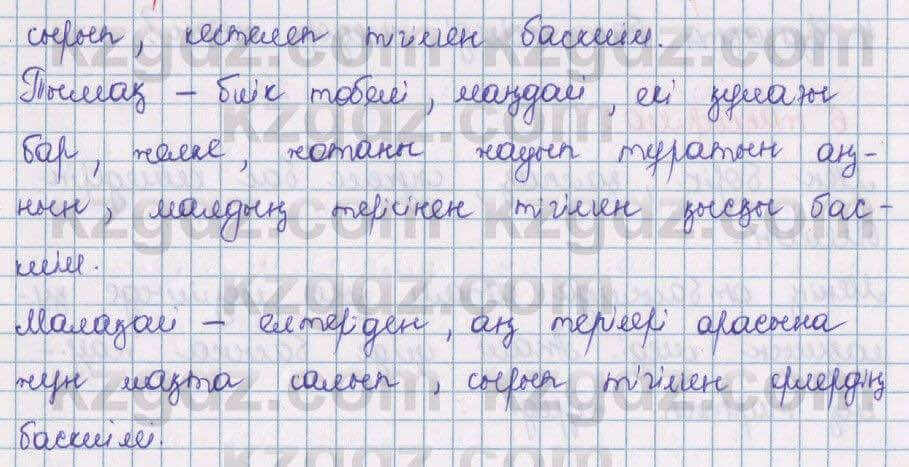 сырып, кестелеп тігілген баскиім.
Тымақ – биік төбелі, маңдай, екі құлағы
бар, желке, жотаны жауып тұратын аң-
ның, малдың терісінен тігілген қысқы бас-
киім.
Малақай – елтеріден, аң терілері арасына
жүн мақта салып, сырып тігілген ерлердің
баскиімі.